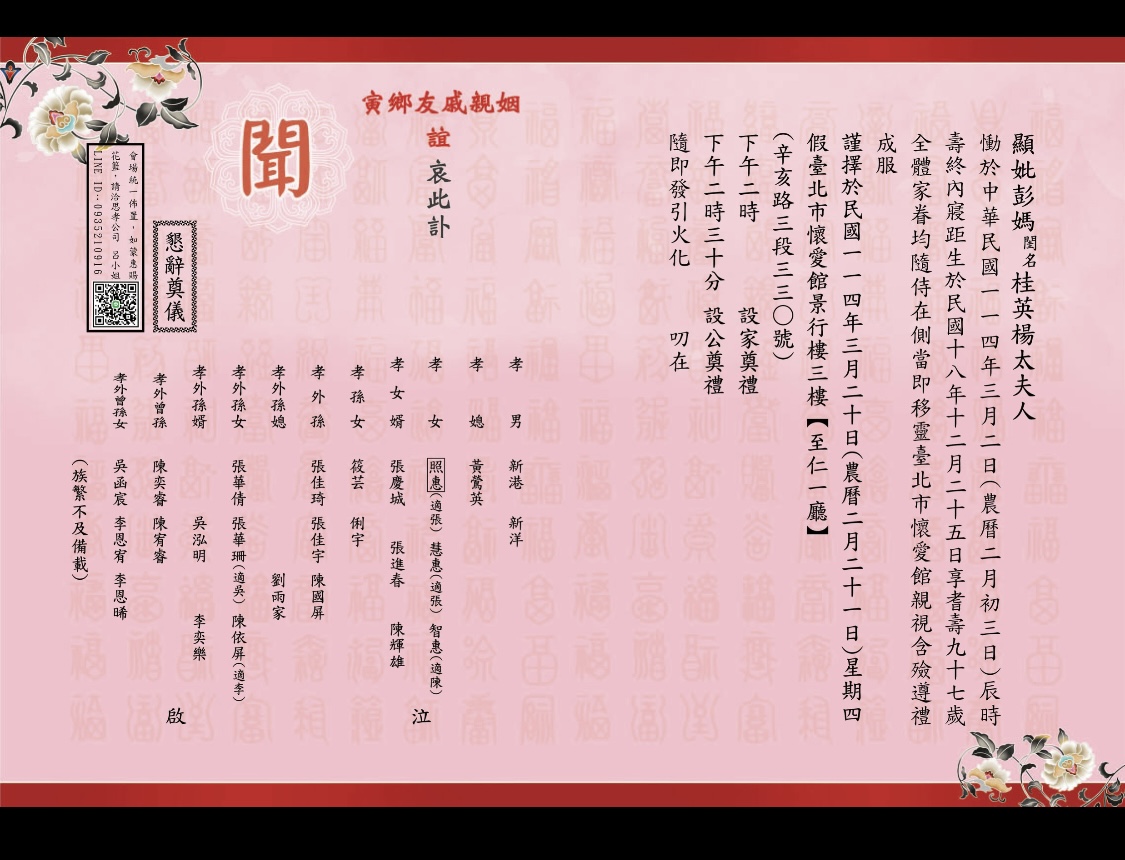 顯妣彭媽閨名桂英楊太夫人
慟於中華民國一一四年三月二日(農曆二月初三日)辰時
壽終內寢距生於民國十八年十二月二十五日享耆壽九十七歲
全體家眷均隨侍在側當即移靈臺北市懷愛館親視含殮遵禮
成服
謹擇於民國一一四年三月二十日(農曆二月二十一日)星期四
假臺北市懷愛館景行樓三樓【至仁一廳】
(辛亥路三段三三〇號)
下午二時 設家奠禮
下午二時三十分 設公奠禮
隨即發引火化 叨在
寅鄉友戚親姻
誼 哀此訃
聞
孝男 新港 新洋
孝媳 黃鶯英
孝女 照惠(適張) 慧惠(適張) 智惠(適陳)
孝女婿 張慶城 張進春 陳輝雄
泣
孝孫女 筱芸 俐宇
孝外孫 張佳琦 張佳宇 陳國屏
孝外孫媳 劉雨家
孝外孫女 張華倩 張華珊(適吳) 陳依屏(適李)
孝外孫婿 吳泓明 李奕樂
啟
孝外曾孫 陳奕睿 陳宥睿
孝外曾孫女 吳函宸 李恩宥 李恩晞
(族繁不及備載)
懇辭奠儀
會場統一佈置，如蒙惠賜
花籃，請洽思孝公司 呂小姐
LINE ID:0935210916